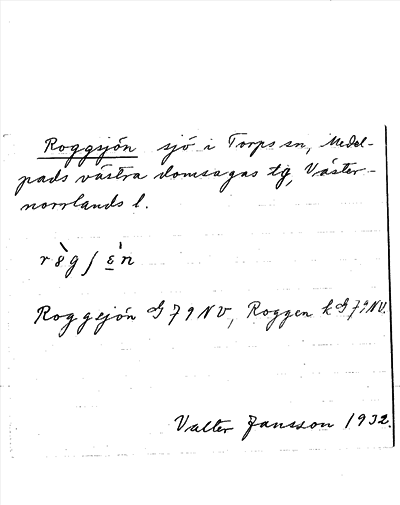 Roggsjön sjö i Torps sn, Medel-
pads västra domsagas tg, Väster-
norrlands l.
Roggsjön G 79 NV, Roggen k G 79 NV.
Valter Jansson 1932.